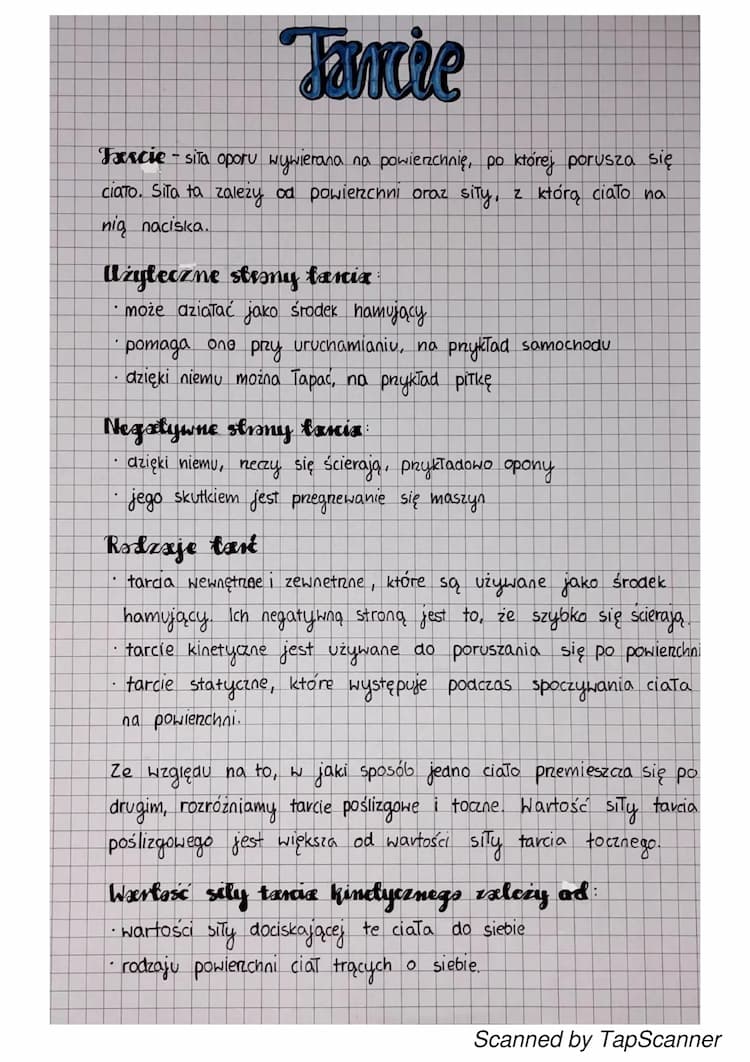 Tarcie
Tarcie - siła oporu wywierana na powierzchnię, po której porusza się
ciało. Siła ta zależy od powierzchni oraz siły, z którą ciało na
nią naciska.
Użyteczne strony tarcia:
· może działać jako środek hamujący
· pomaga ono przy uruchamianiu, na przykład samochodu
· dzięki niemu można łapać, na przykład piłkę
Negatywne strony tarcia:
· dzięki niemu, rzeczy się ścierają, przykładowo opony
· jego skutkiem jest przegrzewanie się maszyn
Rodzaje tarć
· tarcia wewnętrzne i zewnetrzne, które są używane jako środek
hamujący. Ich negatywną stroną jest to, że szybko się ścierają.
· tarcie kinetyczne jest używane do poruszania się po powierzchni
· tarcie statyczne, które występuje podczas spoczywania ciała
na powierzchni.
Ze względu na to, w jaki sposób jedno ciało przemieszcza się po
drugim, rozróżniamy tarcie poślizgowe i toczne. Wartość siły tarcia
poślizgowego jest większa od wartości siły tarcia tocznego.
Wartość siły tarcia kinetycznego zależy od:
· wartości siły dociskającej te ciała do siebie
· rodzaju powierzchni ciał trących o siebie.
Scanned by TapScanner